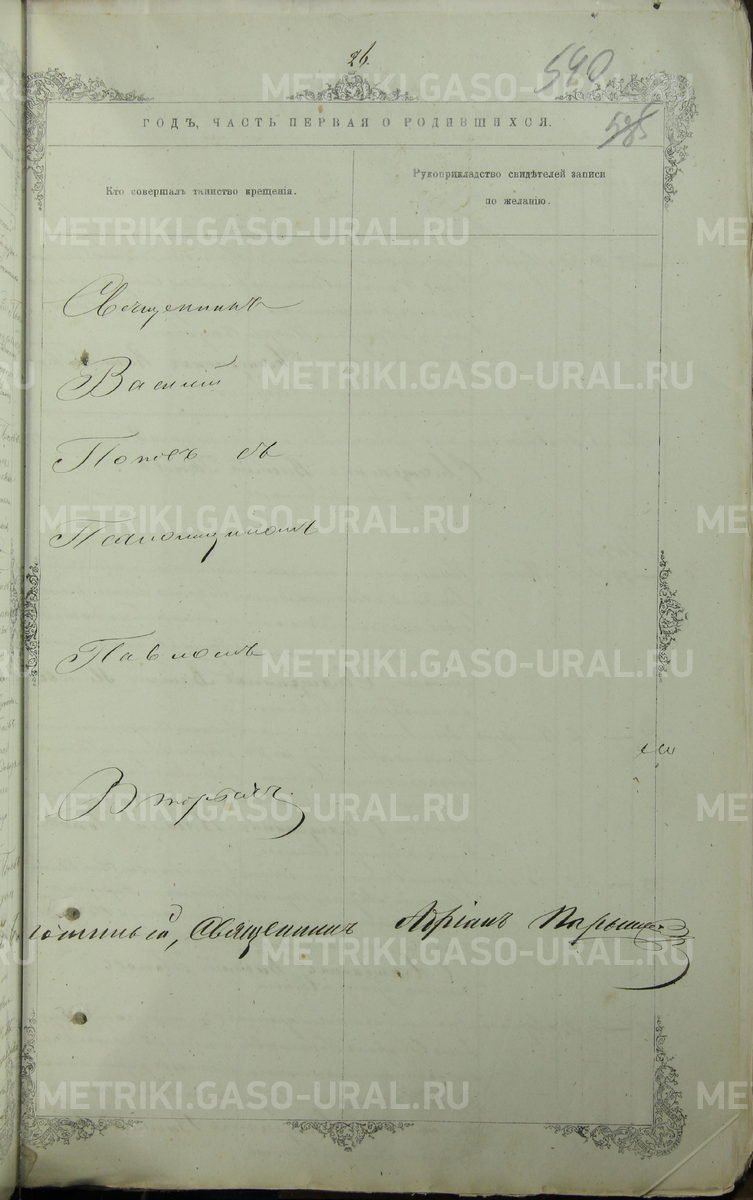 26.
540
585
ГОДЪ, ЧАСТЬ ПЕРВАЯ О РОДИВШИХСЯ.
Кто совершалъ таинство крещенія.
Рукоприкладство свидѣтелей записи
по желанію.
Священникъ
Василій
Поповъ съ
Псаломщикомъ
Павломъ
Священникъ Адріанъ
METRIKI.GASO-URAL.RU